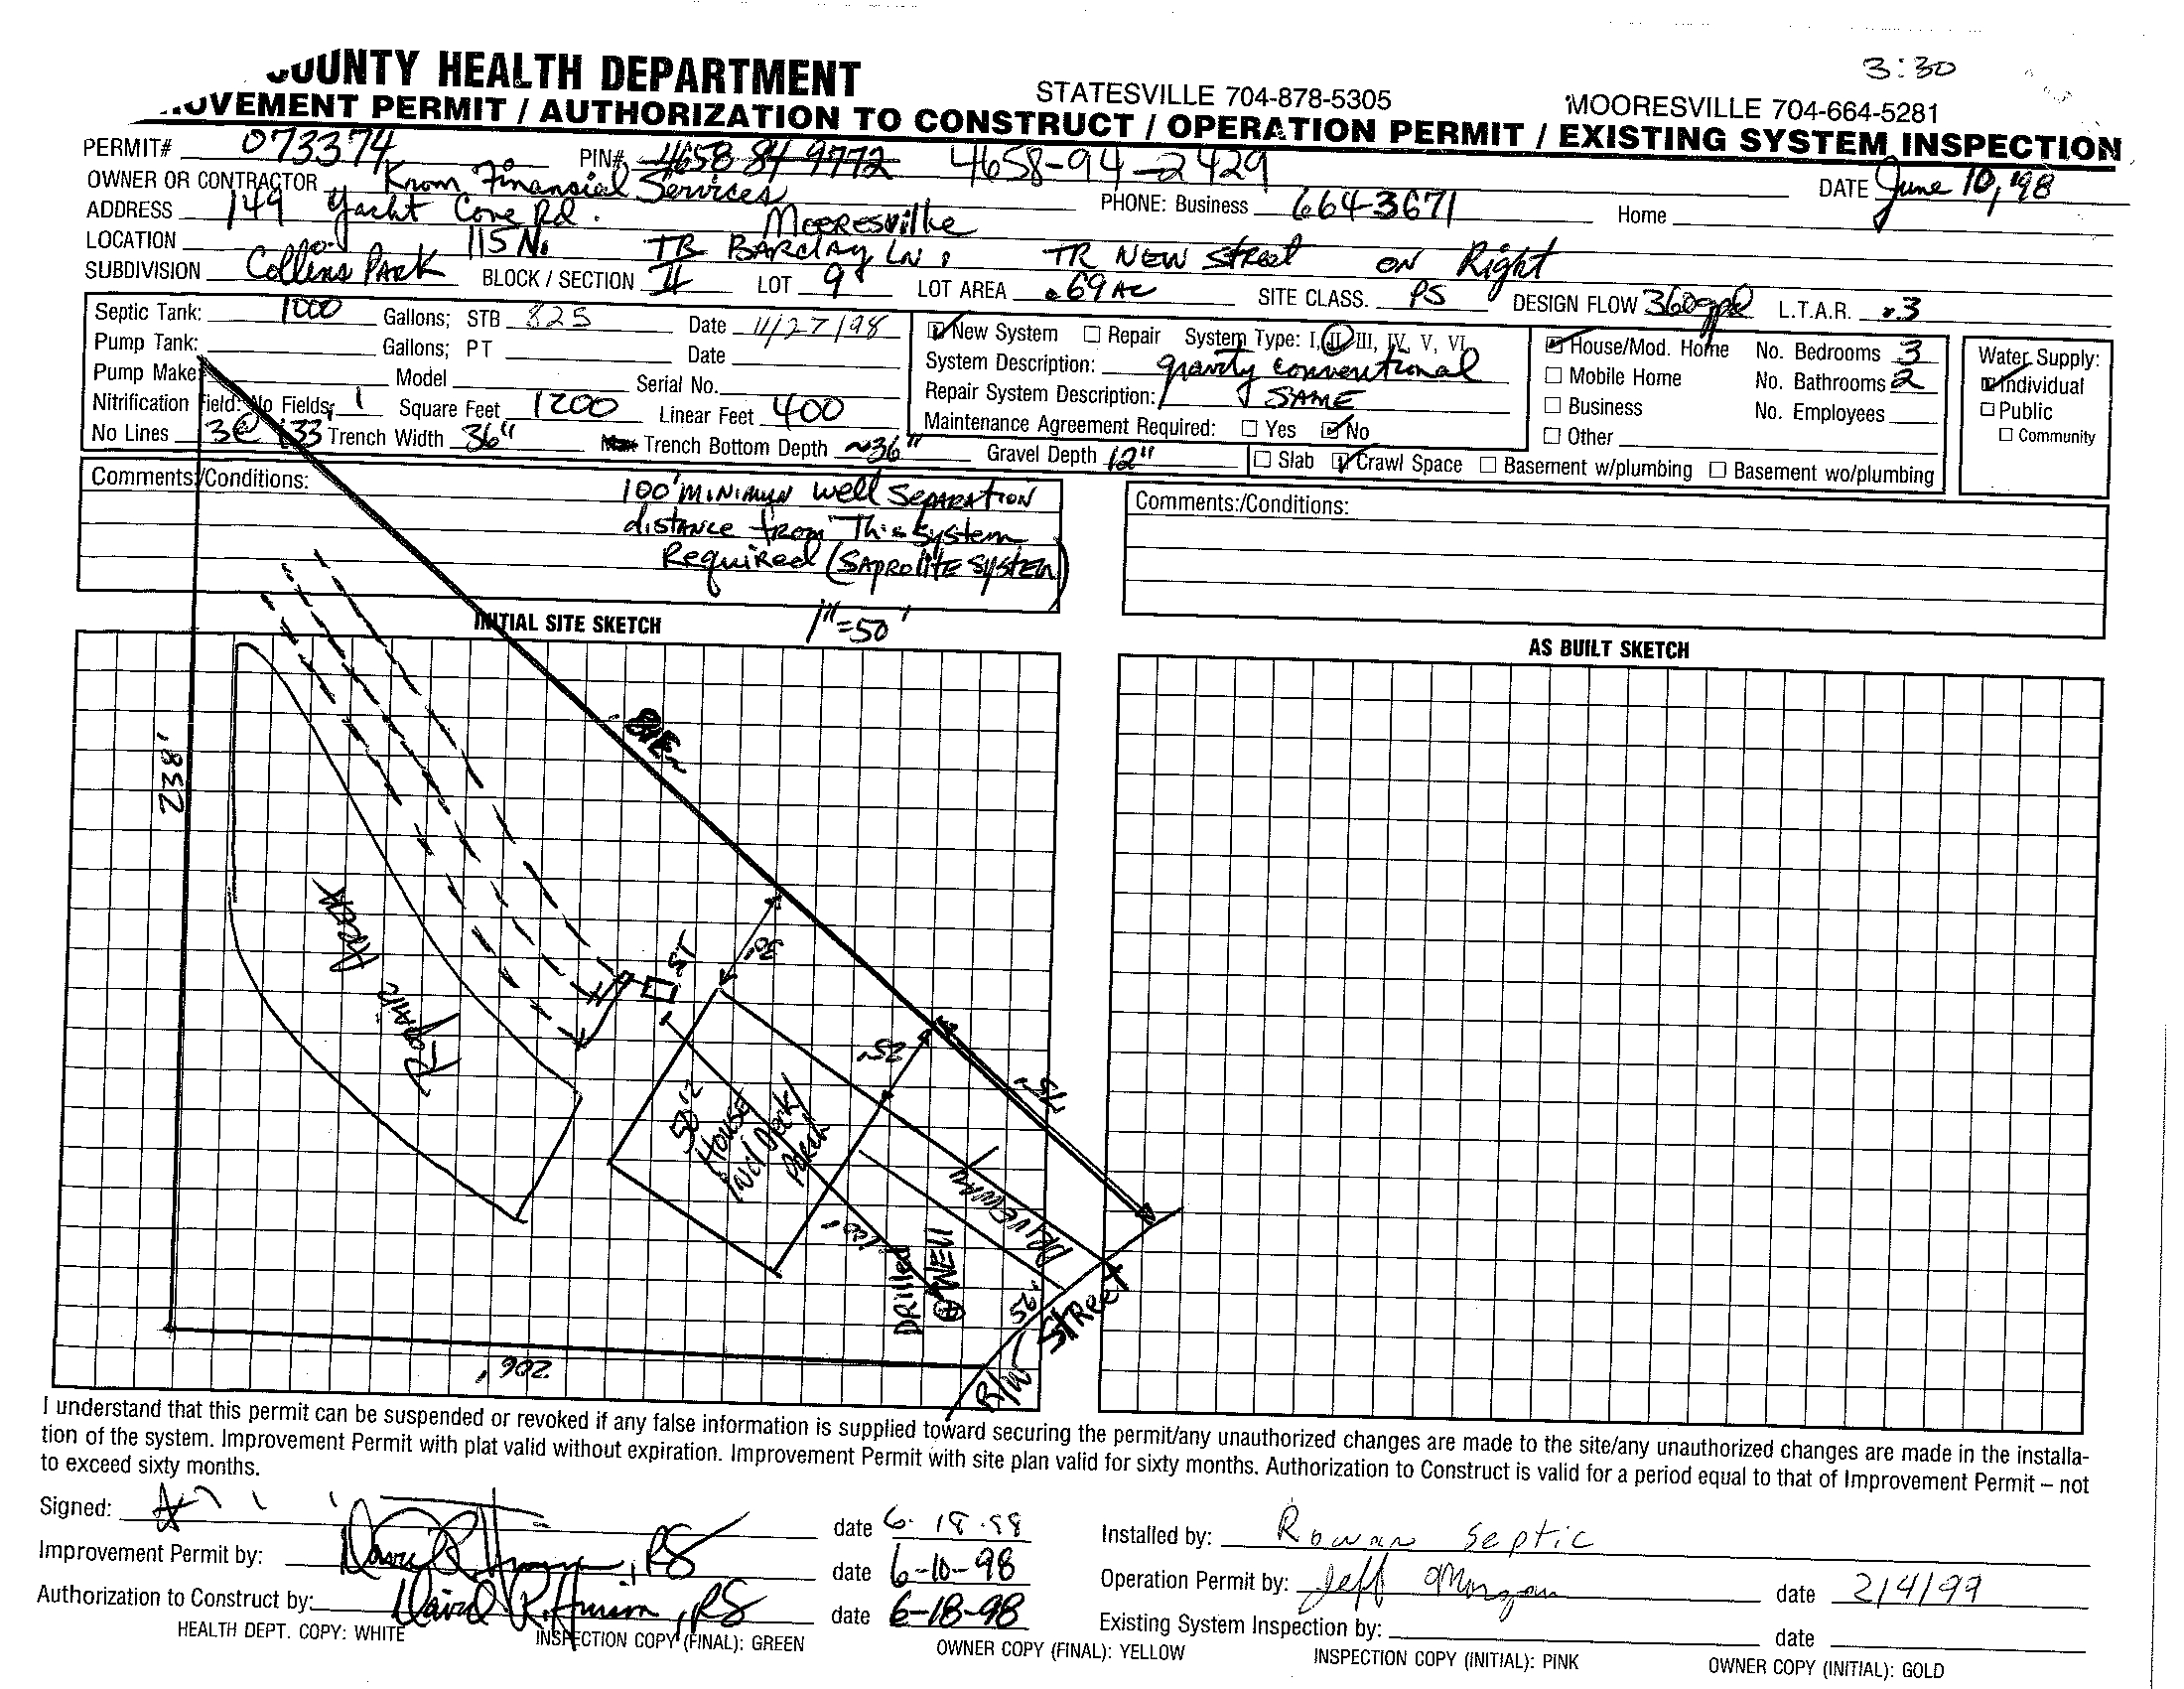 3:30
OUNTY HEALTH DEPARTMENT
STATESVILLE 704-878-5305 MOORESVILLE 704-664-5281
OVEMENT PERMIT / AUTHORIZATION TO CONSTRUCT / OPERATION PERMIT / EXISTING SYSTEM INSPECTION
PERMIT# 073374 PIN# 4658 84 9772 4658-94-2429
OWNER OR CONTRACTOR Krom Financial Services DATE June 10, '98
ADDRESS 149 Yacht Cove Rd. Mooresville PHONE: Business 664-3671 Home
LOCATION 115 N. TR BARCLAY LN, TR NEW Street ON Right
SUBDIVISION Collins Park BLOCK / SECTION II LOT 9 LOT AREA .69 AC SITE CLASS. PS DESIGN FLOW 360gpd L.T.A.R. .3
Septic Tank: 1000 Gallons; STB 825 Date 11/27/98
Pump Tank: Gallons; PT Date
Pump Make Model Serial No.
Nitrification Field: No Fields; 1 Square Feet 1200 Linear Feet 400
No Lines 3@ 133 Trench Width 36" Max Trench Bottom Depth ~36" Gravel Depth 12"
New System Repair System Type: I, II, III, IV, V, VI
System Description: gravity conventional
Repair System Description: SAME
Maintenance Agreement Required: Yes No
House/Mod. Home No. Bedrooms 3
Mobile Home No. Bathrooms 2
Business No. Employees
Other
Slab Crawl Space Basement w/plumbing Basement wo/plumbing
Water Supply:
Individual
Public
Community
Comments:/Conditions: 100' MINIMUM well SEPARATION
distance from This System
Required (SAPROLITE SYSTEM)
Comments:/Conditions:
INITIAL SITE SKETCH 1"=50'
AS BUILT SKETCH
238'
30'
ST
Repair
AREA
25'
75'
50'
House
incl Deck/
porch
DRIVEWAY
100'
DRilled
WELL
95'
STREET
R/W
206'
I understand that this permit can be suspended or revoked if any false information is supplied toward securing the permit/any unauthorized changes are made to the site/any unauthorized changes are made in the installa-
tion of the system. Improvement Permit with plat valid without expiration. Improvement Permit with site plan valid for sixty months. Authorization to Construct is valid for a period equal to that of Improvement Permit – not
to exceed sixty months.
Signed: date 6-18-98
Improvement Permit by: RS date 6-10-98
Authorization to Construct by: David R. , RS date 6-18-98
Installed by: Rowan Septic
Operation Permit by: Jeff Morgan date 2/4/99
Existing System Inspection by: date
HEALTH DEPT. COPY: WHITE INSPECTION COPY (FINAL): GREEN OWNER COPY (FINAL): YELLOW INSPECTION COPY (INITIAL): PINK OWNER COPY (INITIAL): GOLD